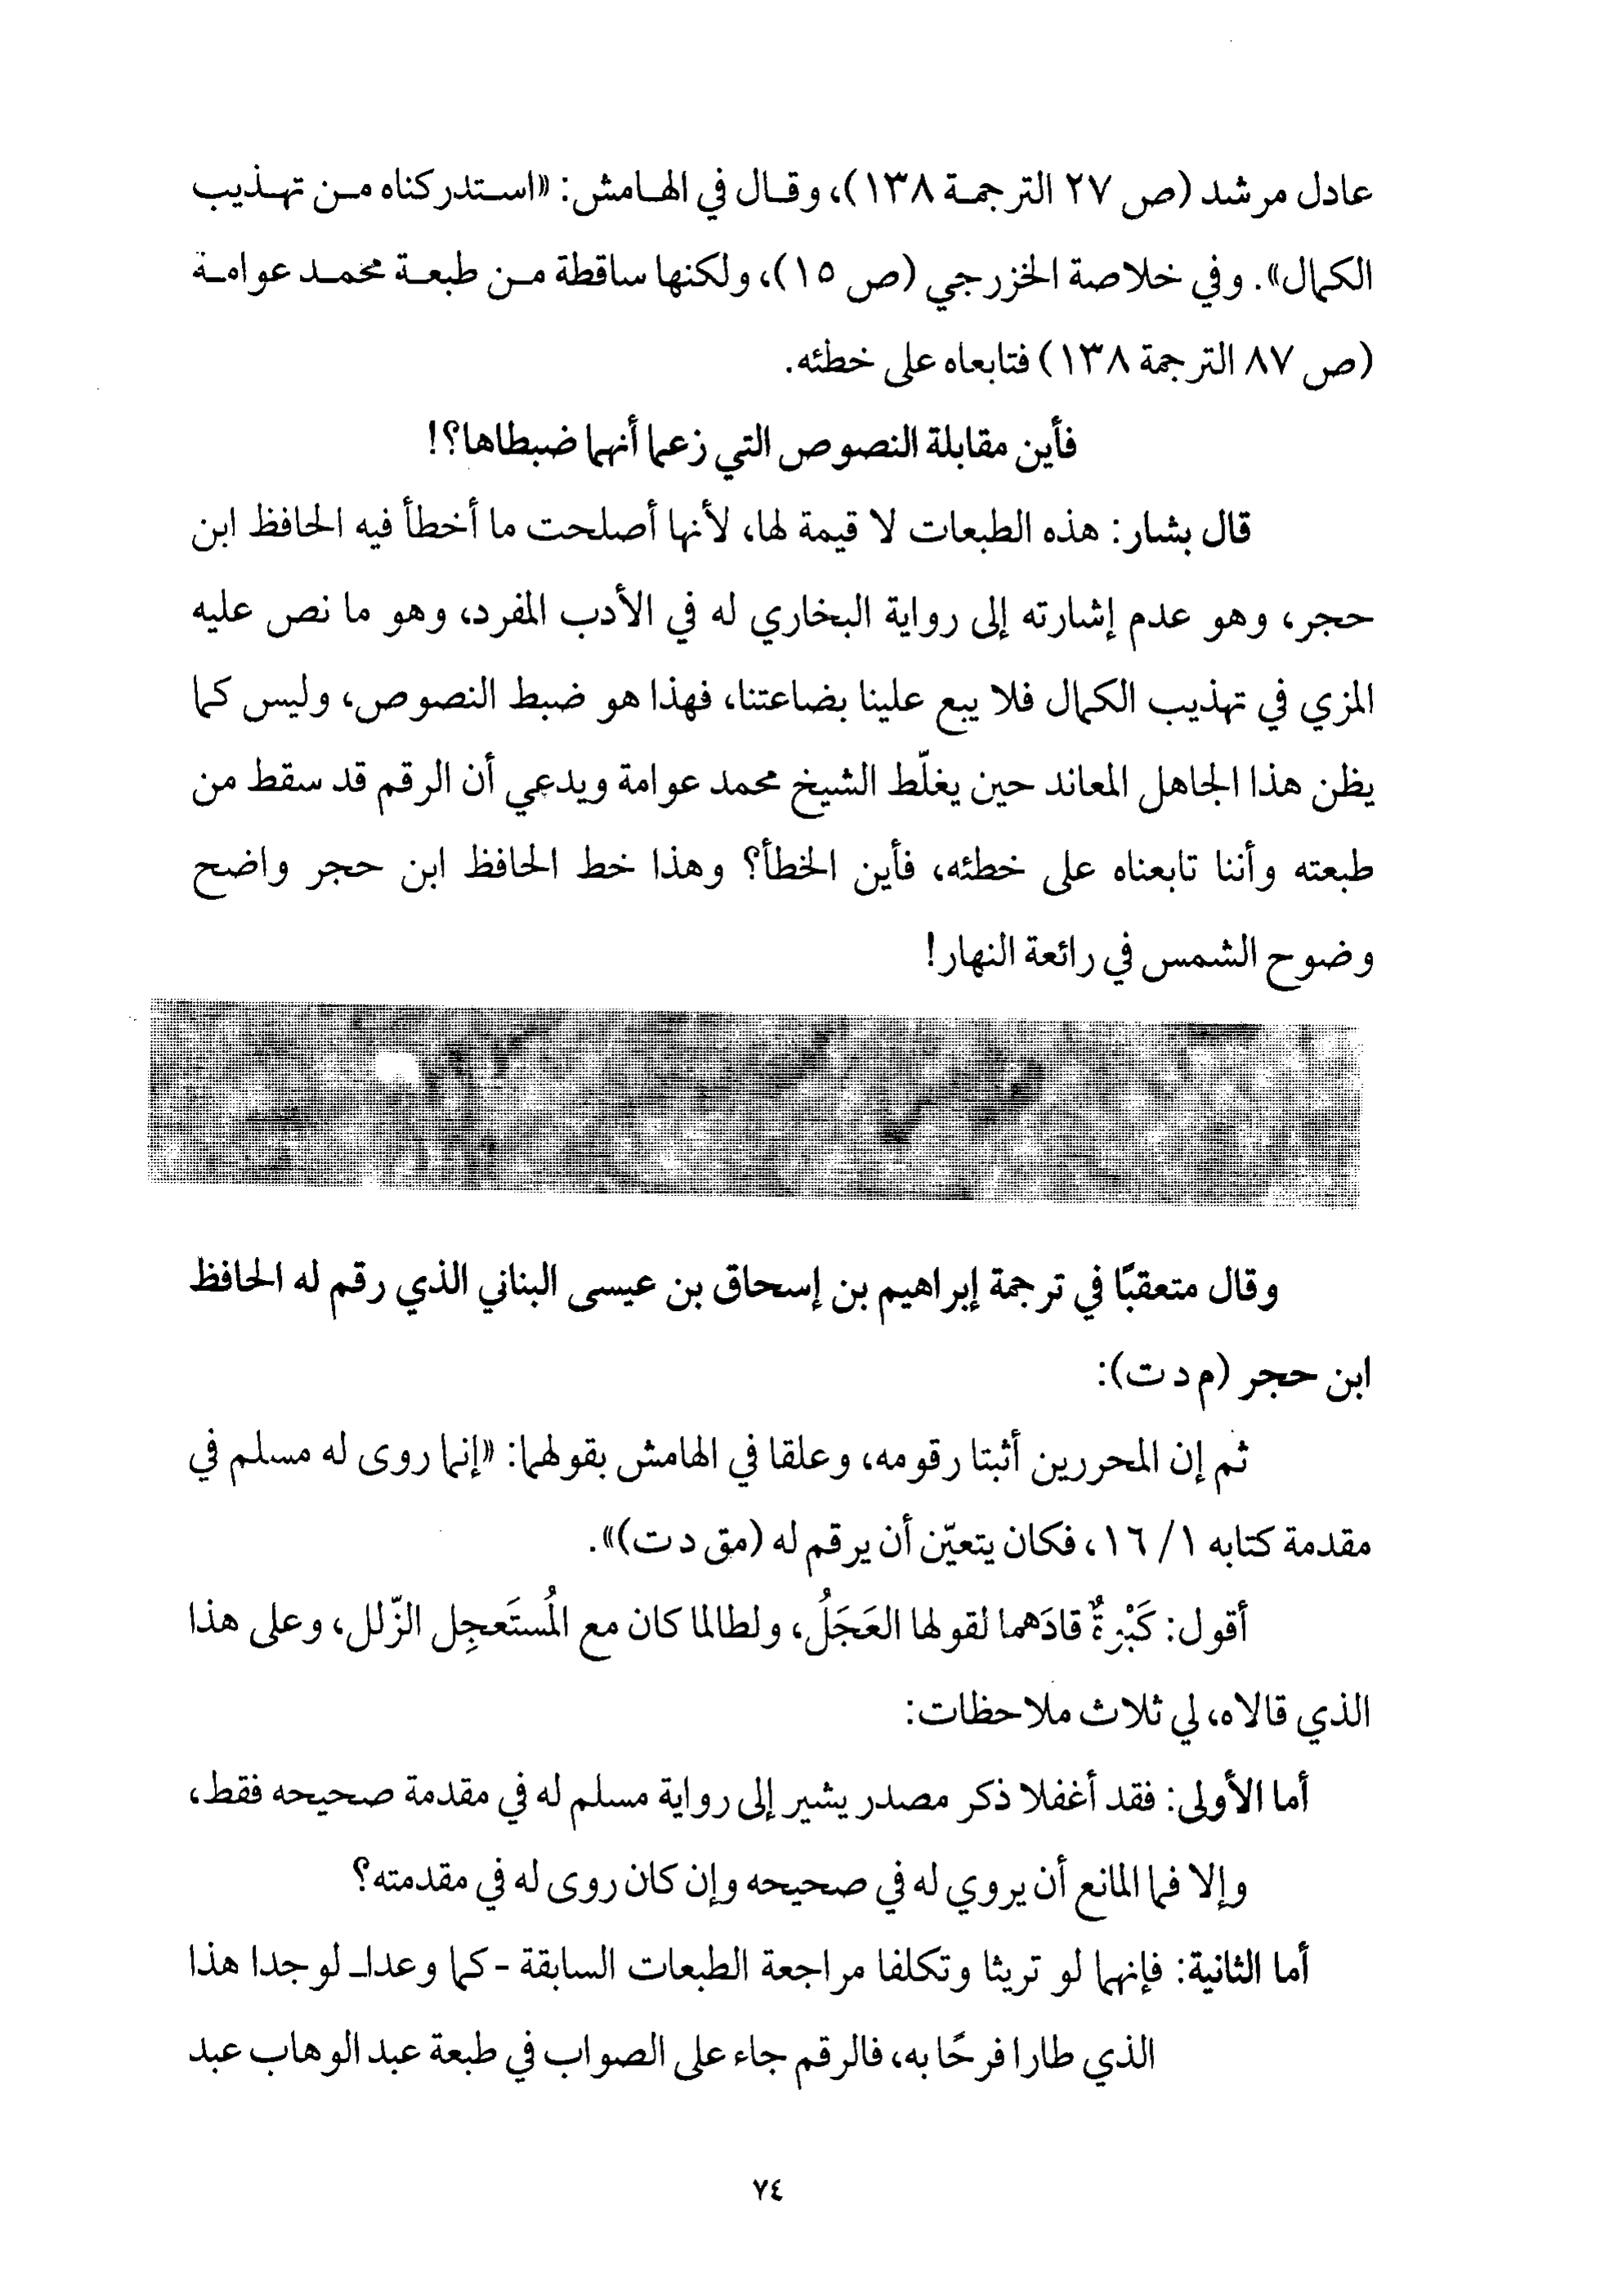 عادل مرشد (ص ٢٧ الترجمة ١٣٨)، وقال في الهامش: «استدركناه من تهذيب
الكمال». وفي خلاصة الخزرجي (ص ١٥)، ولكنها ساقطة من طبعة محمد عوامة
(ص ٨٧ الترجمة ١٣٨) فتابعاه على خطئه.
فأين مقابلة النصوص التي زعما أنهما ضبطاها؟!
قال بشار: هذه الطبعات لا قيمة لها، لأنها أصلحت ما أخطأ فيه الحافظ ابن
حجر، وهو عدم إشارته إلى رواية البخاري له في الأدب المفرد، وهو ما نص عليه
المزي في تهذيب الكمال فلا يبع علينا بضاعتنا، فهذا هو ضبط النصوص، وليس كما
يظن هذا الجاهل المعاند حين يغلّط الشيخ محمد عوامة ويدعي أن الرقم قد سقط من
طبعته وأننا تابعناه على خطئه، فأين الخطأ؟ وهذا خط الحافظ ابن حجر واضح
وضوح الشمس في رائعة النهار!
وقال متعقبًا في ترجمة إبراهيم بن إسحاق بن عيسى البناني الذي رقم له الحافظ
ابن حجر (م د ت):
ثم إن المحررين أثبتا رقومه، وعلقا في الهامش بقولهما: «إنما روى له مسلم في
مقدمة كتابه ١/ ١٦، فكان يتعيّن أن يرقم له (مق د ت)».
أقول: كَبْرةٌ قادَهما لقولها العَجَلُ، ولطالما كان مع المُستَعجِل الزّلل، وعلى هذا
الذي قالاه، لي ثلاث ملاحظات:
أما الأولى: فقد أغفلا ذكر مصدر يشير إلى رواية مسلم له في مقدمة صحيحه فقط،
وإلا فما المانع أن يروي له في صحيحه وإن كان روى له في مقدمته؟
أما الثانية: فإنهما لو تريثا وتكلفا مراجعة الطبعات السابقة -كما وعدا- لوجدا هذا
الذي طارا فرحًا به، فالرقم جاء على الصواب في طبعة عبد الوهاب عبد
٧٤